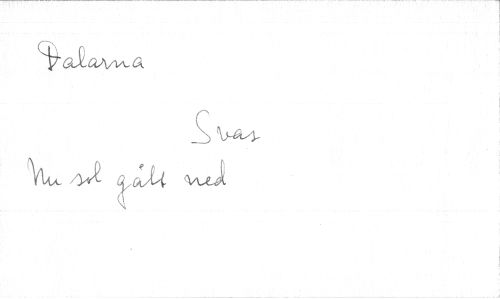 Dalarna
Svas
Nu sol gått ned